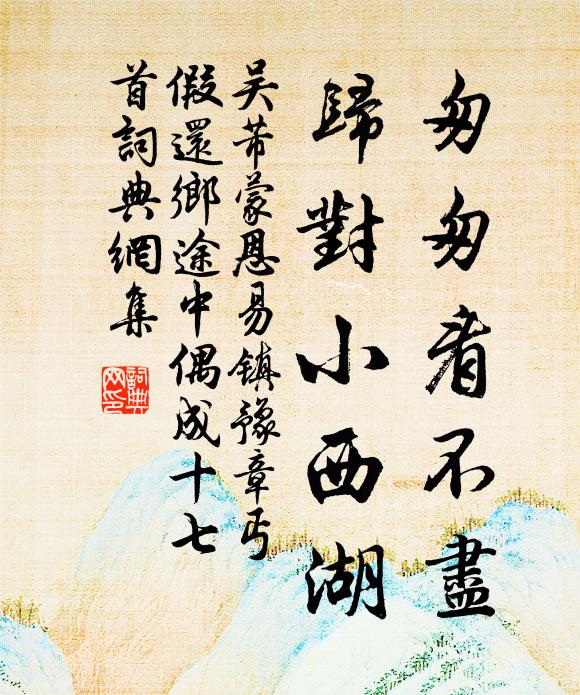 匆匆看不盡
歸對小西湖
吴芾蒙恩易鎮豫章丐
假還鄉途中偶成十七
首詞典網集
詞典網印